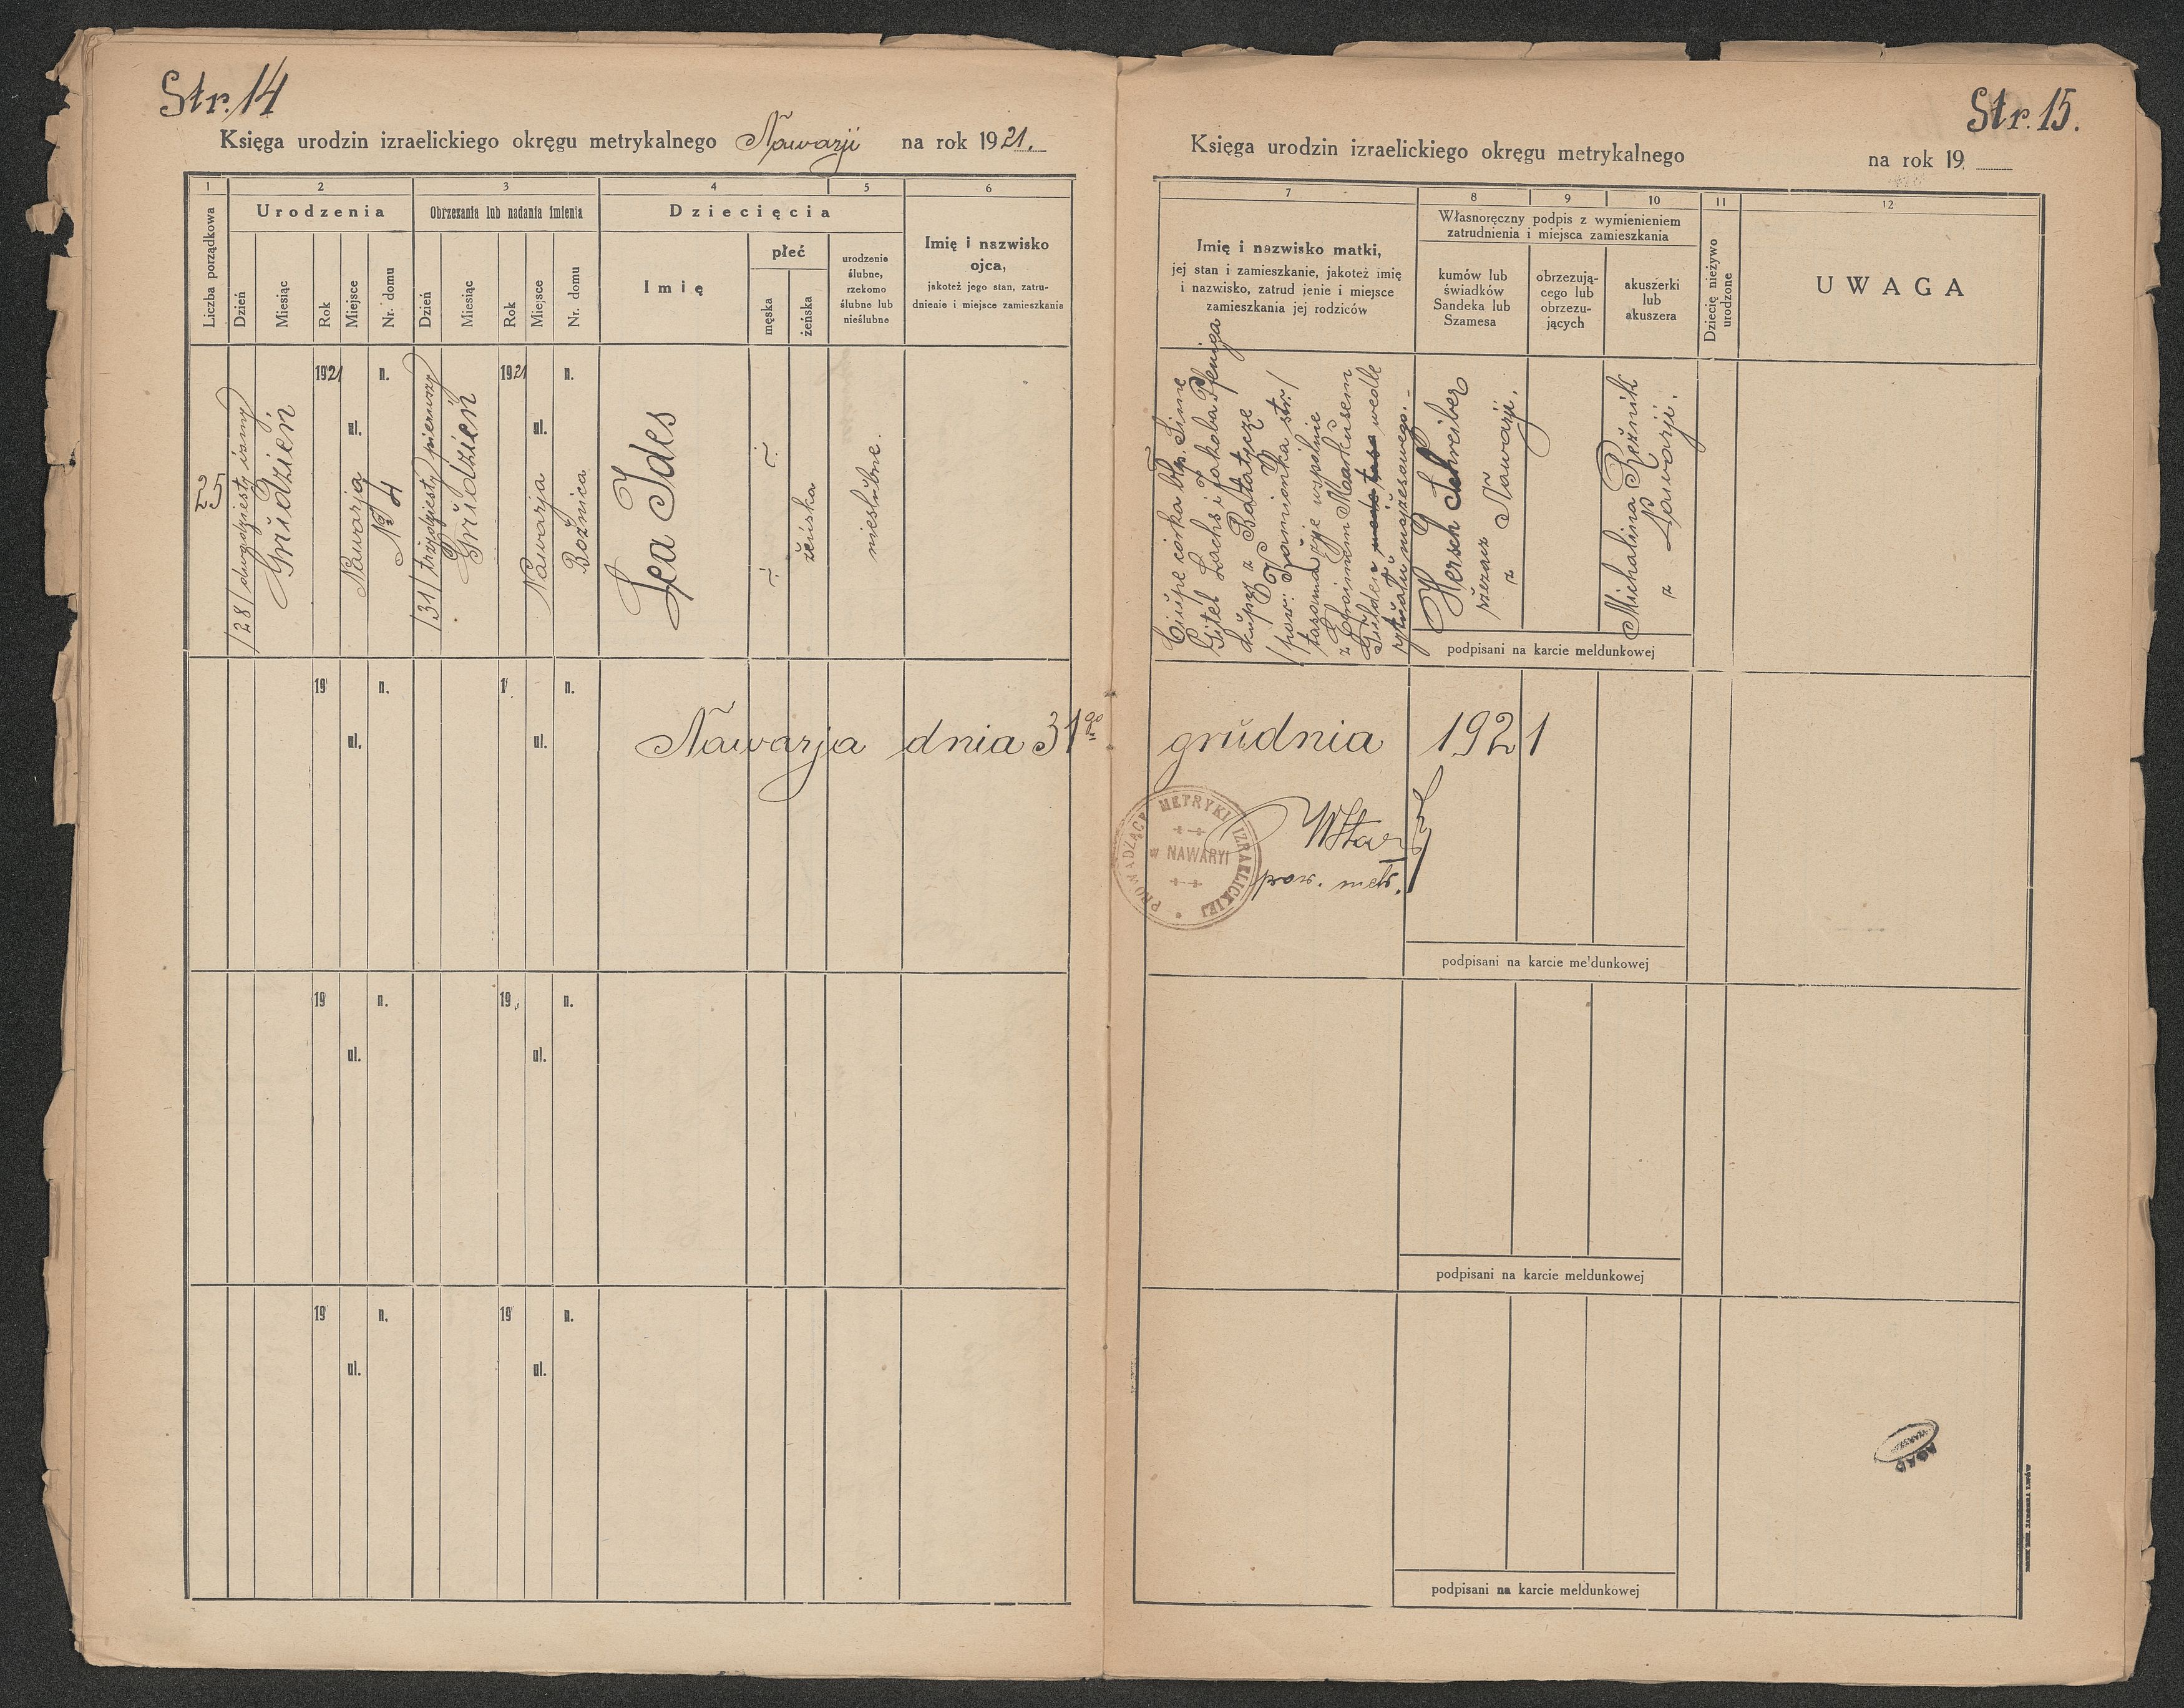 Str. 14
Księga urodzin izraelickiego okręgu metrykalnego Nawarji na rok 1921.
1 2 3 4 5 6
Liczba porządkowa
Urodzenia
Dzień
Miesiąc
Rok
Miejsce
Nr. domu
Obrzezania lub nadania imienia
Dzień
Miesiąc
Rok
Miejsce
Nr. domu
Dziecięcia
Imię
płeć
męska
żeńska
urodzenie
ślubne,
rzekomo
ślubne lub
nieślubne
Imię i nazwisko
ojca,
jakoteż jego stan, zatru-
dnienie i miejsce zamieszkania
/28/ dwudziesty ósmy
Grudzień
1921
ul.
n.
Nawarja
№ 4
/31/ trzydziesty pierwszy
Grudzień
1921
ul.
n.
Nawarja
Bożnica
Lea Ides
żeńska
nieślubne.
19 n. 1 n.
ul. ul.
Nawarja dnia 31go
19 n. 19 n.
ul. ul.
19 n. 19 n.
ul. ul.
Str. 15.
Księga urodzin izraelickiego okręgu metrykalnego na rok 19
7 8 9 10 11 12
Imię i nazwisko matki,
jej stan i zamieszkanie, jakoteż imię
i nazwisko, zatrud jenie i miejsce
zamieszkania jej rodziców
Własnoręczny podpis z wymienieniem
zatrudnienia i miejsca zamieszkania
kumów lub
świadków
Sandeka lub
Szamesa
obrzezują-
cego lub
obrzezu-
jących
akuszerki
lub
akuszera
Dziecię nieżywo
urodzone
UWAGA
córka
Gitel Sachs i Jakoba Pfeniga
z Batatycze
/pow: Kamionka str./
żyje wspólnie
z Chaimem Markusem
wedle
rytuału mojżeszowego.-
Hersch Schreiber
rzezak
z Nawarji.
Michalina Reźnik
z Nawarji.
podpisani na karcie meldunkowej
grudnia 1921
PROWADZĄCY METRYKI IZRAELICKIEJ
w NAWARYI
prow. metr.
podpisani na karcie meldunkowej
podpisani na karcie meldunkowej
podpisani na karcie meldunkowej
AGAD